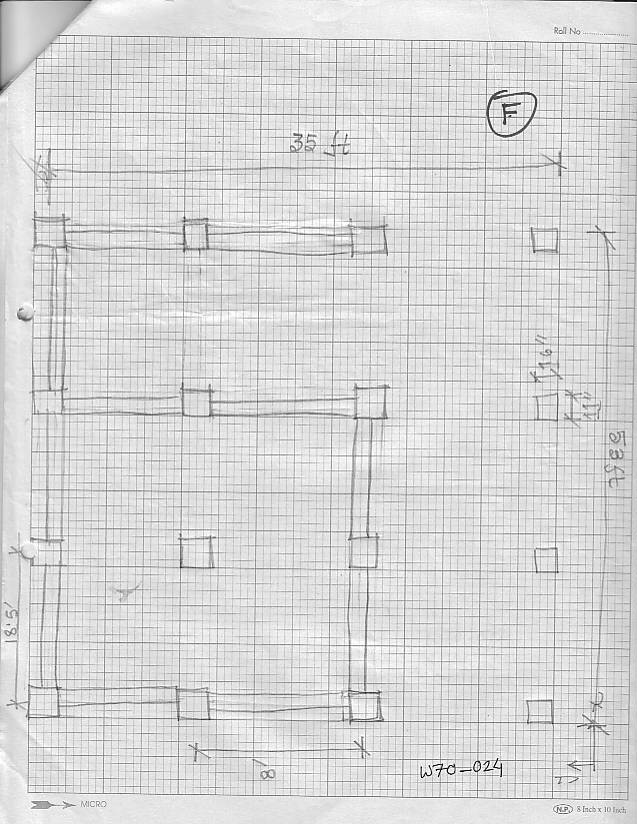 Roll No ....................
F
35 ft
16"
11"
53ft
18'5'
8'
W70-024
MICRO
N.P. 8 Inch x 10 Inch